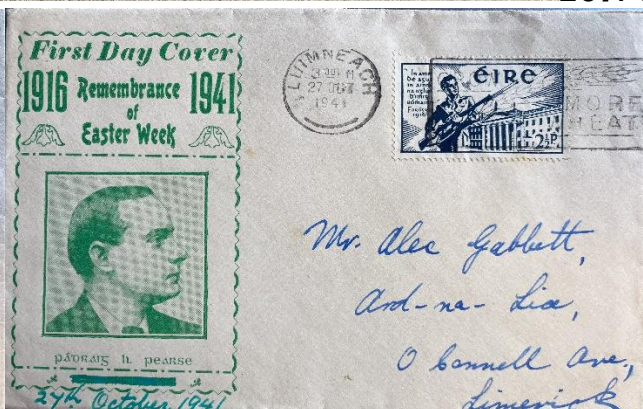 First Day Cover
1916 Remembrance 1941
of
Easter Week
pádraig h. pearse
27th October 1941
LUIMNEACH
27
1941
ÉIRE
2½P
MORE
Mr. Alec Gabbett,
Ard-na-Lia,
O Connell Ave,
Limerick